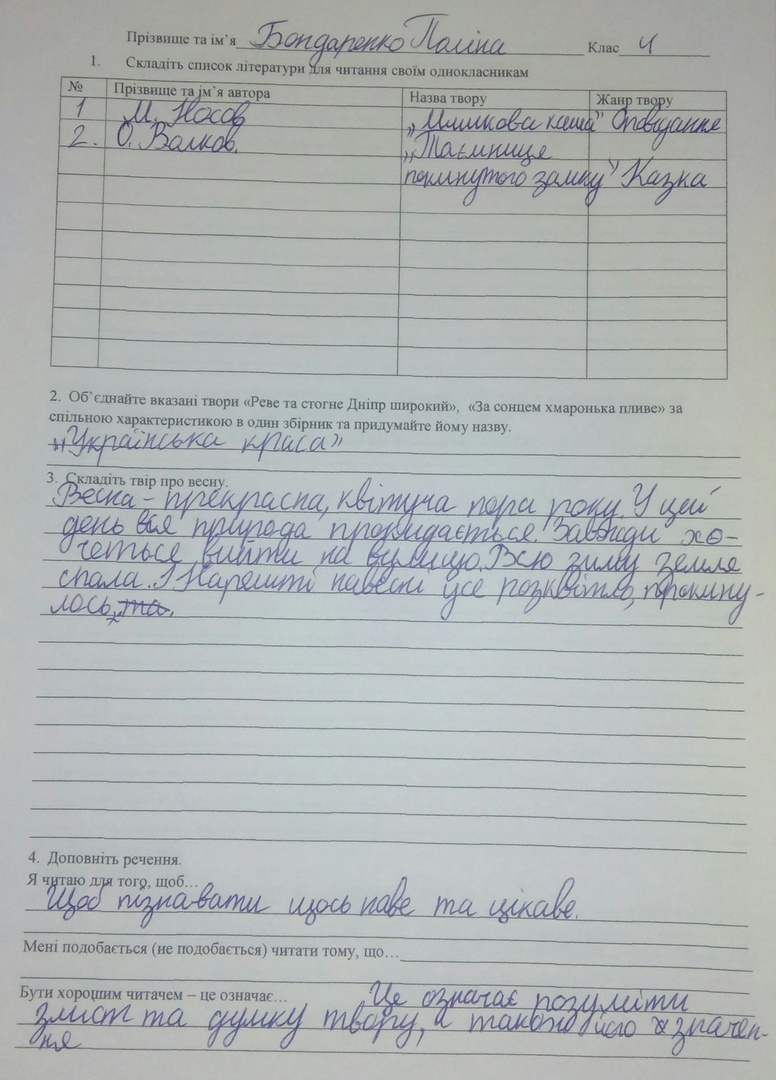 Прізвище та ім’я Бондаренко Поліна Клас 4
1. Складіть список літератури для читання своїм однокласникам
№ Прізвище та ім’я автора Назва твору Жанр твору
1 М. Носов „Мишкова каша" Оповідання
2. О. Волков. „Таємниця
покинутого замку" Казка
2. Об’єднайте вказані твори «Реве та стогне Дніпр широкий», «За сонцем хмаронька пливе» за
спільною характеристикою в один збірник та придумайте йому назву.
„Українська краса"
3. Складіть твір про весну.
Весна - прекрасна, квітуча пора року. У цей
день вся природа прокидається. Завжди хо-
четься вийти на вулицю. Всю зиму земля
спала. І Нарешті навесні усе розквітло, прокину-
лось, та.
4. Доповніть речення.
Я читаю для того, щоб…
Щоб пізнавати щось нове та цікаве.
Мені подобається (не подобається) читати тому, що…
Бути хорошим читачем – це означає… Це означає розуміти
зміст та думку твору, а також його значен-
ня